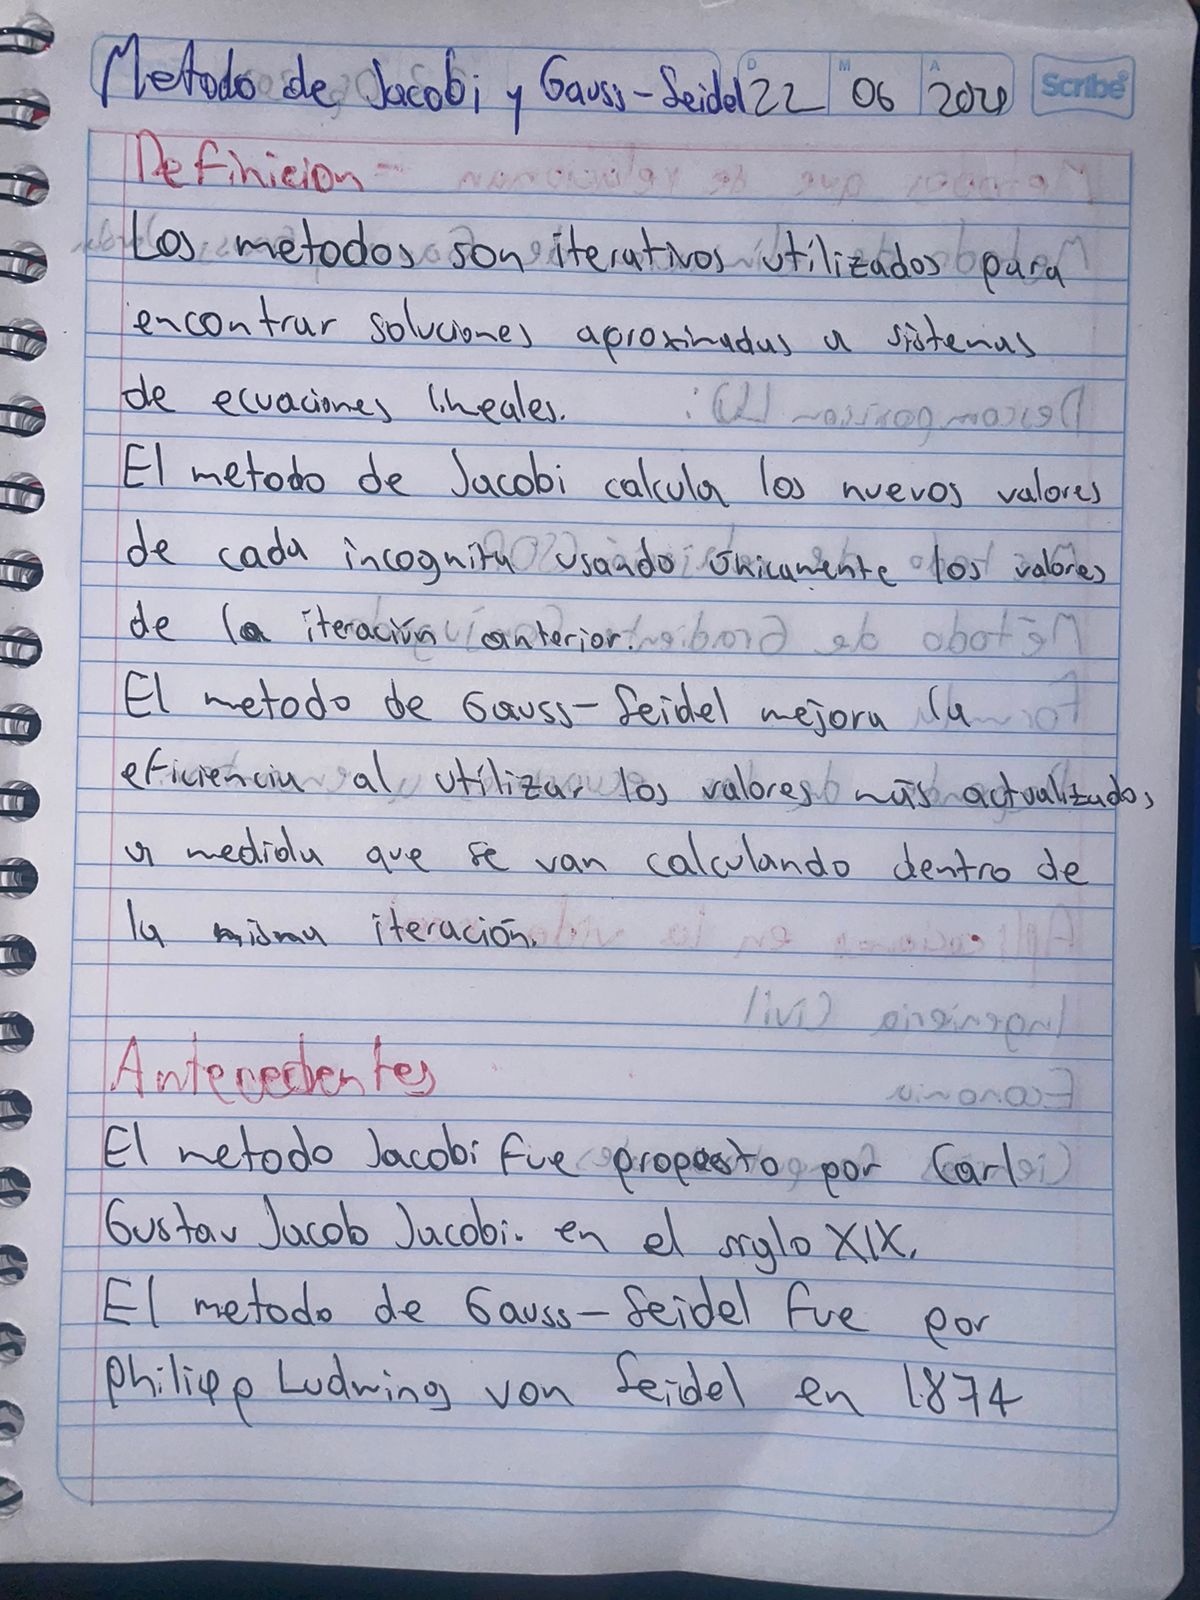 Metodo de Jacobi y Gauss-Seidel D 22 M 06 A Scribe
Definicion
Los metodos son iterativos utilizados para
encontrar soluciones aproximadas a sistemas
de ecuaciones lineales.
El metodo de Jacobi calcula los nuevos valores
de cada incognita usando únicamente los valores
de la iteración anterior.
El metodo de Gauss-Seidel mejora la
eficiencia al utilizar los valores más actualizados
a medida que se van calculando dentro de
la misma iteración.
Antecedentes
El metodo Jacobi fue propuesto por Carl
Gustav Jacob Jacobi. en el siglo XIX.
El metodo de Gauss-Seidel fue por
Philipp Ludwing von Seidel en 1874